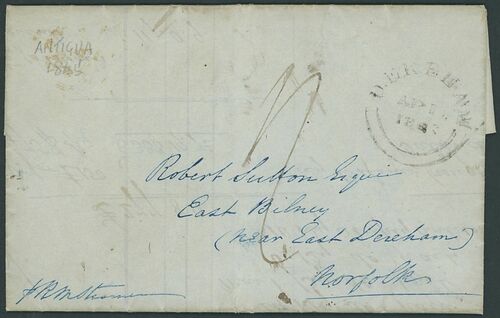 ANTIGUA
DEREHAM
AP
Robert Sutton Esqre
East Bilney
(near East Dereham)
Norfolk